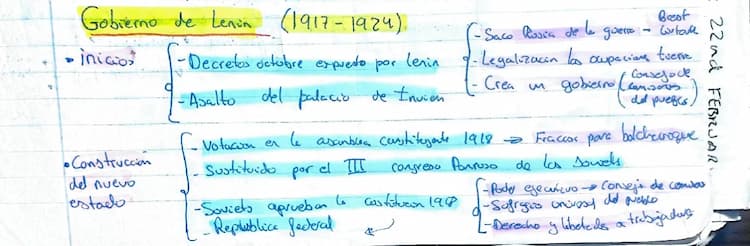 Gobierno de Lenin (1917-1924)
22nd FEBRUAR
• inicios
- Decretos octubre expuesto por Lenin
- Asalto del palacio de Invien
- Saca Rusia de la guerra → Brest
- Legalizacion las ocupacions tuerra
- Crea un gobierno (consejo de
comisarios
del pueblo)
• Construcción
del nuevo
estado
- Votacion en la asamblea constituyente 1918 → Fracaso para bolchevique
- Sustituido por el III congreso Panruso de los soviets
- Soviets aprueban la constitucion 1918
- Republica federal
- Poder ejecutivo → consejo de
- Sufragio universal del pueblo
- Derecho y libertades a trabajadores